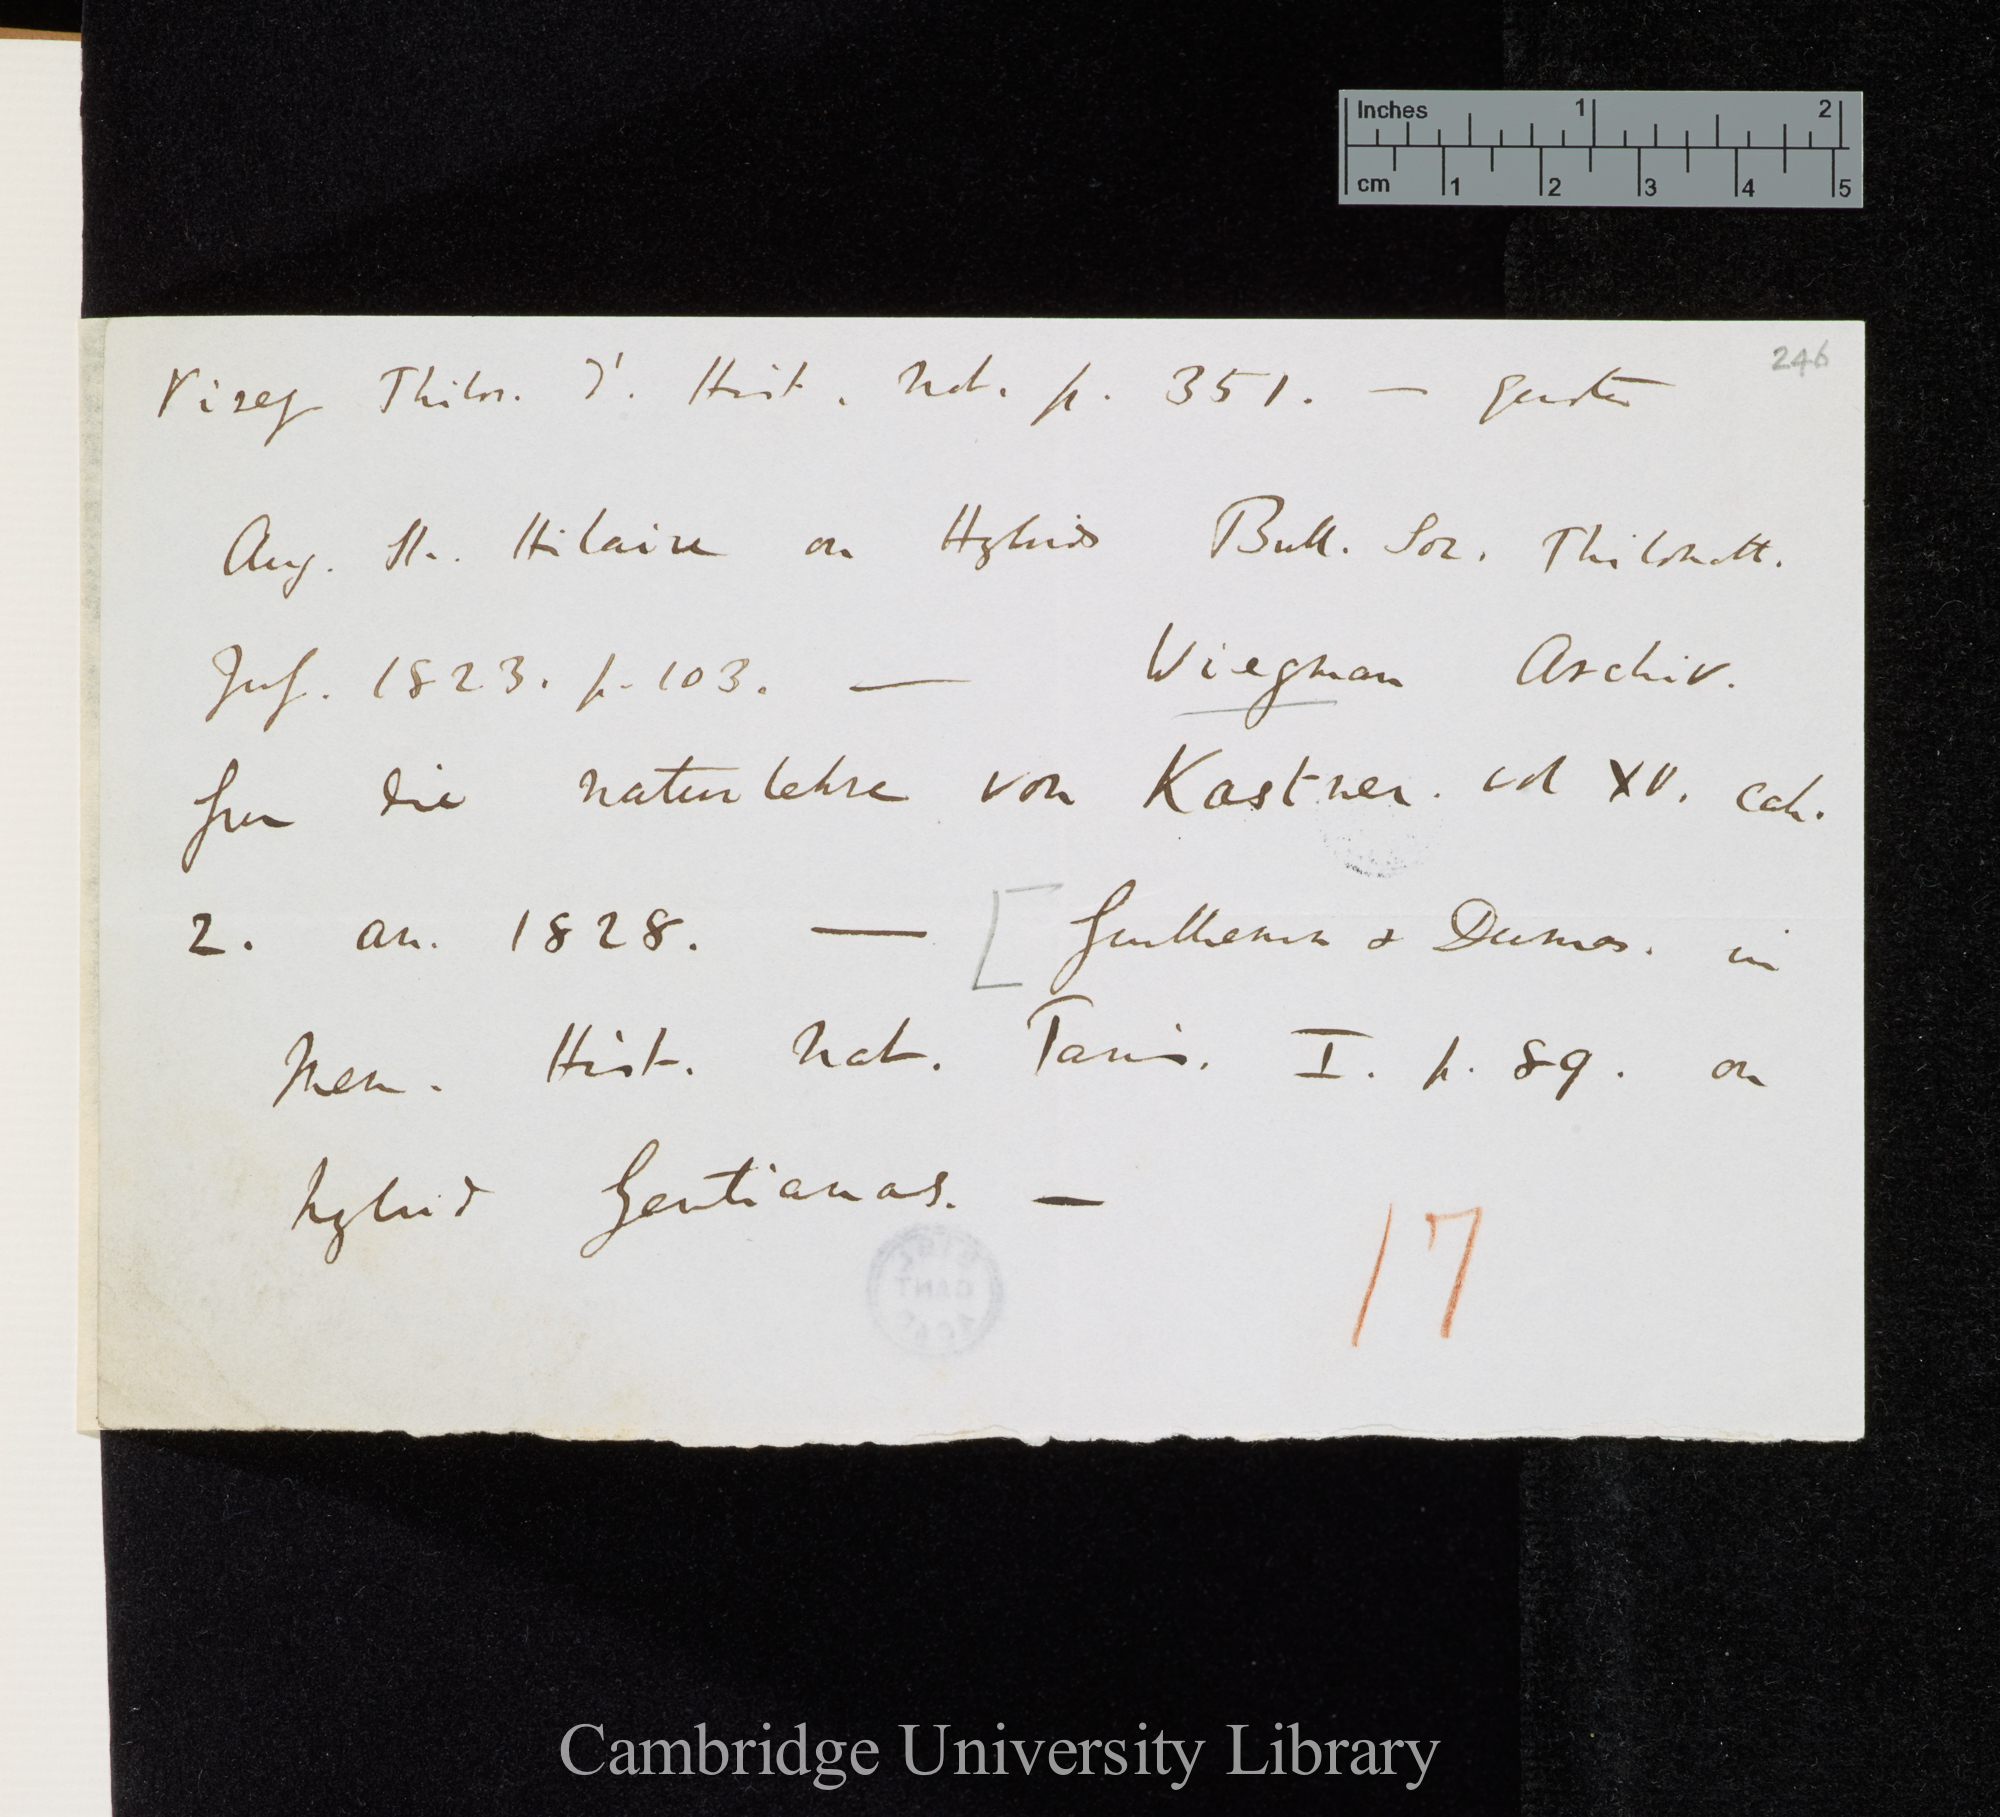 Inches 1 2
cm 1 2 3 4 5
246
Virey Philos. d'. Hist. Nat. p. 351. — quotes
Aug. St. Hilaire on Hybrids Bull. Soc. Philomatt.
1823. p. 103. — Wiegman Archiv.
fur die naturlehre von Kastner. vol XV. cah.
2. an. 1828. — [ Guillemin & Dumas. in
Mem. Hist. Nat. Paris. I. p. 89. on
hybrid Gentianas. —
17
Cambridge University Library